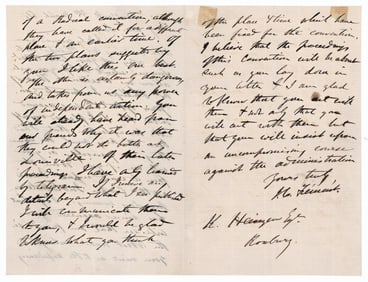 of a Radical convention, although
they have called it for a different
place & an earlier time. Of
the two plans suggested by
you I like this one best.
The other is certainly dangerous
and takes from us any power
of independent action. You
will already have heard from
our friends why it was that
they could not do better at
Louisville. Of their later
proceedings I have only learned
by telegram. If I receive any
details beyond what I am published
I will communicate them
to you, & I would be glad
to know what you think
of the place & time which have
been fixed for the convention.
I believe that the proceedings
of this Convention will be about
such as you lay down in
your letter & I am glad
to know that you act with
them & not only that you
will act with them but
that you will insist upon
an uncompromising course
against the administration
Yours truly
K. Heinzen Esq.
Roxbury.